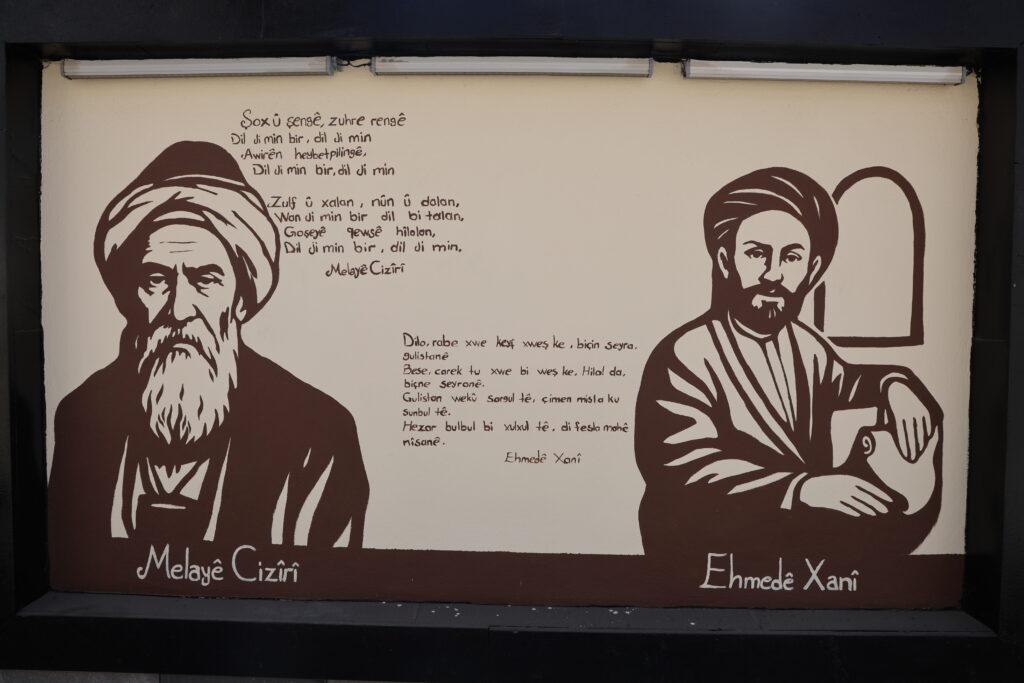 Şox û şengê, zuhre rengê
Dil ji min bir, dil ji min
Awirên heybetpilingê,
Dil ji min bir, dil ji min
Zulf û xalan, nûn û dalan,
Wan ji min bir dil bi talan,
Goşeyê qewsê hilalan,
Dil ji min bir, dil ji min.
Melayê Cizîrî
Dilo, rabe xwe keyf xweş ke, biçin seyra,
gulistanê
Bese, carek tu xwe bi weş ke, Hilal da,
biçne seyranê.
Gulistan wekû sorgul tê, çimen misla ku
sunbul tê.
Hezar bulbul bi xulxul tê, di fesla mahê
nîsanê.
Ehmedê Xanî
Melayê Cizîrî
Ehmedê Xanî